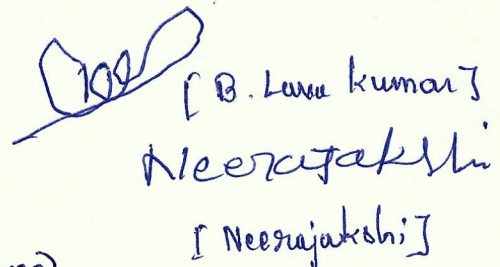 [B. Lava Kumar]
Neerajakshi
[Neerajakshi]